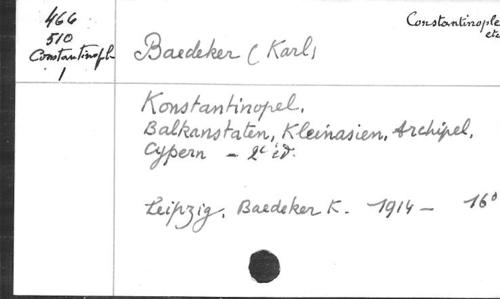 466
510
Constantinopl-
1
Constantinople
etc
Baedeker (Karl)
Konstantinopel.
Balkanstaten, Kleinasien, Archipel,
Cypern - 2e éd.
Leipzig, Baedeker K. 1914 - 16°